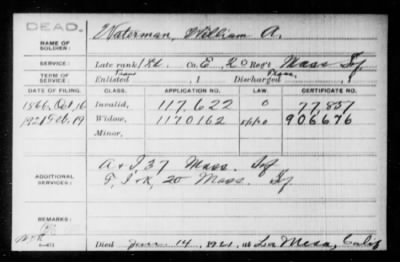 DEAD.
NAME OF SOLDIER: Waterman, William A.
SERVICE: Late rank 1 Lt. Co. E, 20 Reg't Mass Inf
TERM OF SERVICE Enlisted , 1 Discharged , 1
DATE OF FILING. CLASS. APPLICATION NO. LAW. CERTIFICATE NO.
1866, Oct, 16 Invalid, 117,622 77,857
1921 Feb. 19 Widow, 1170162 906676
Minor,
ADDITIONAL SERVICES: A & I, 37 Mass. Inf
F, I & K, 20 Mass. Inf
REMARKS:
Died Jan 14, 1921 at La Mesa, Calif